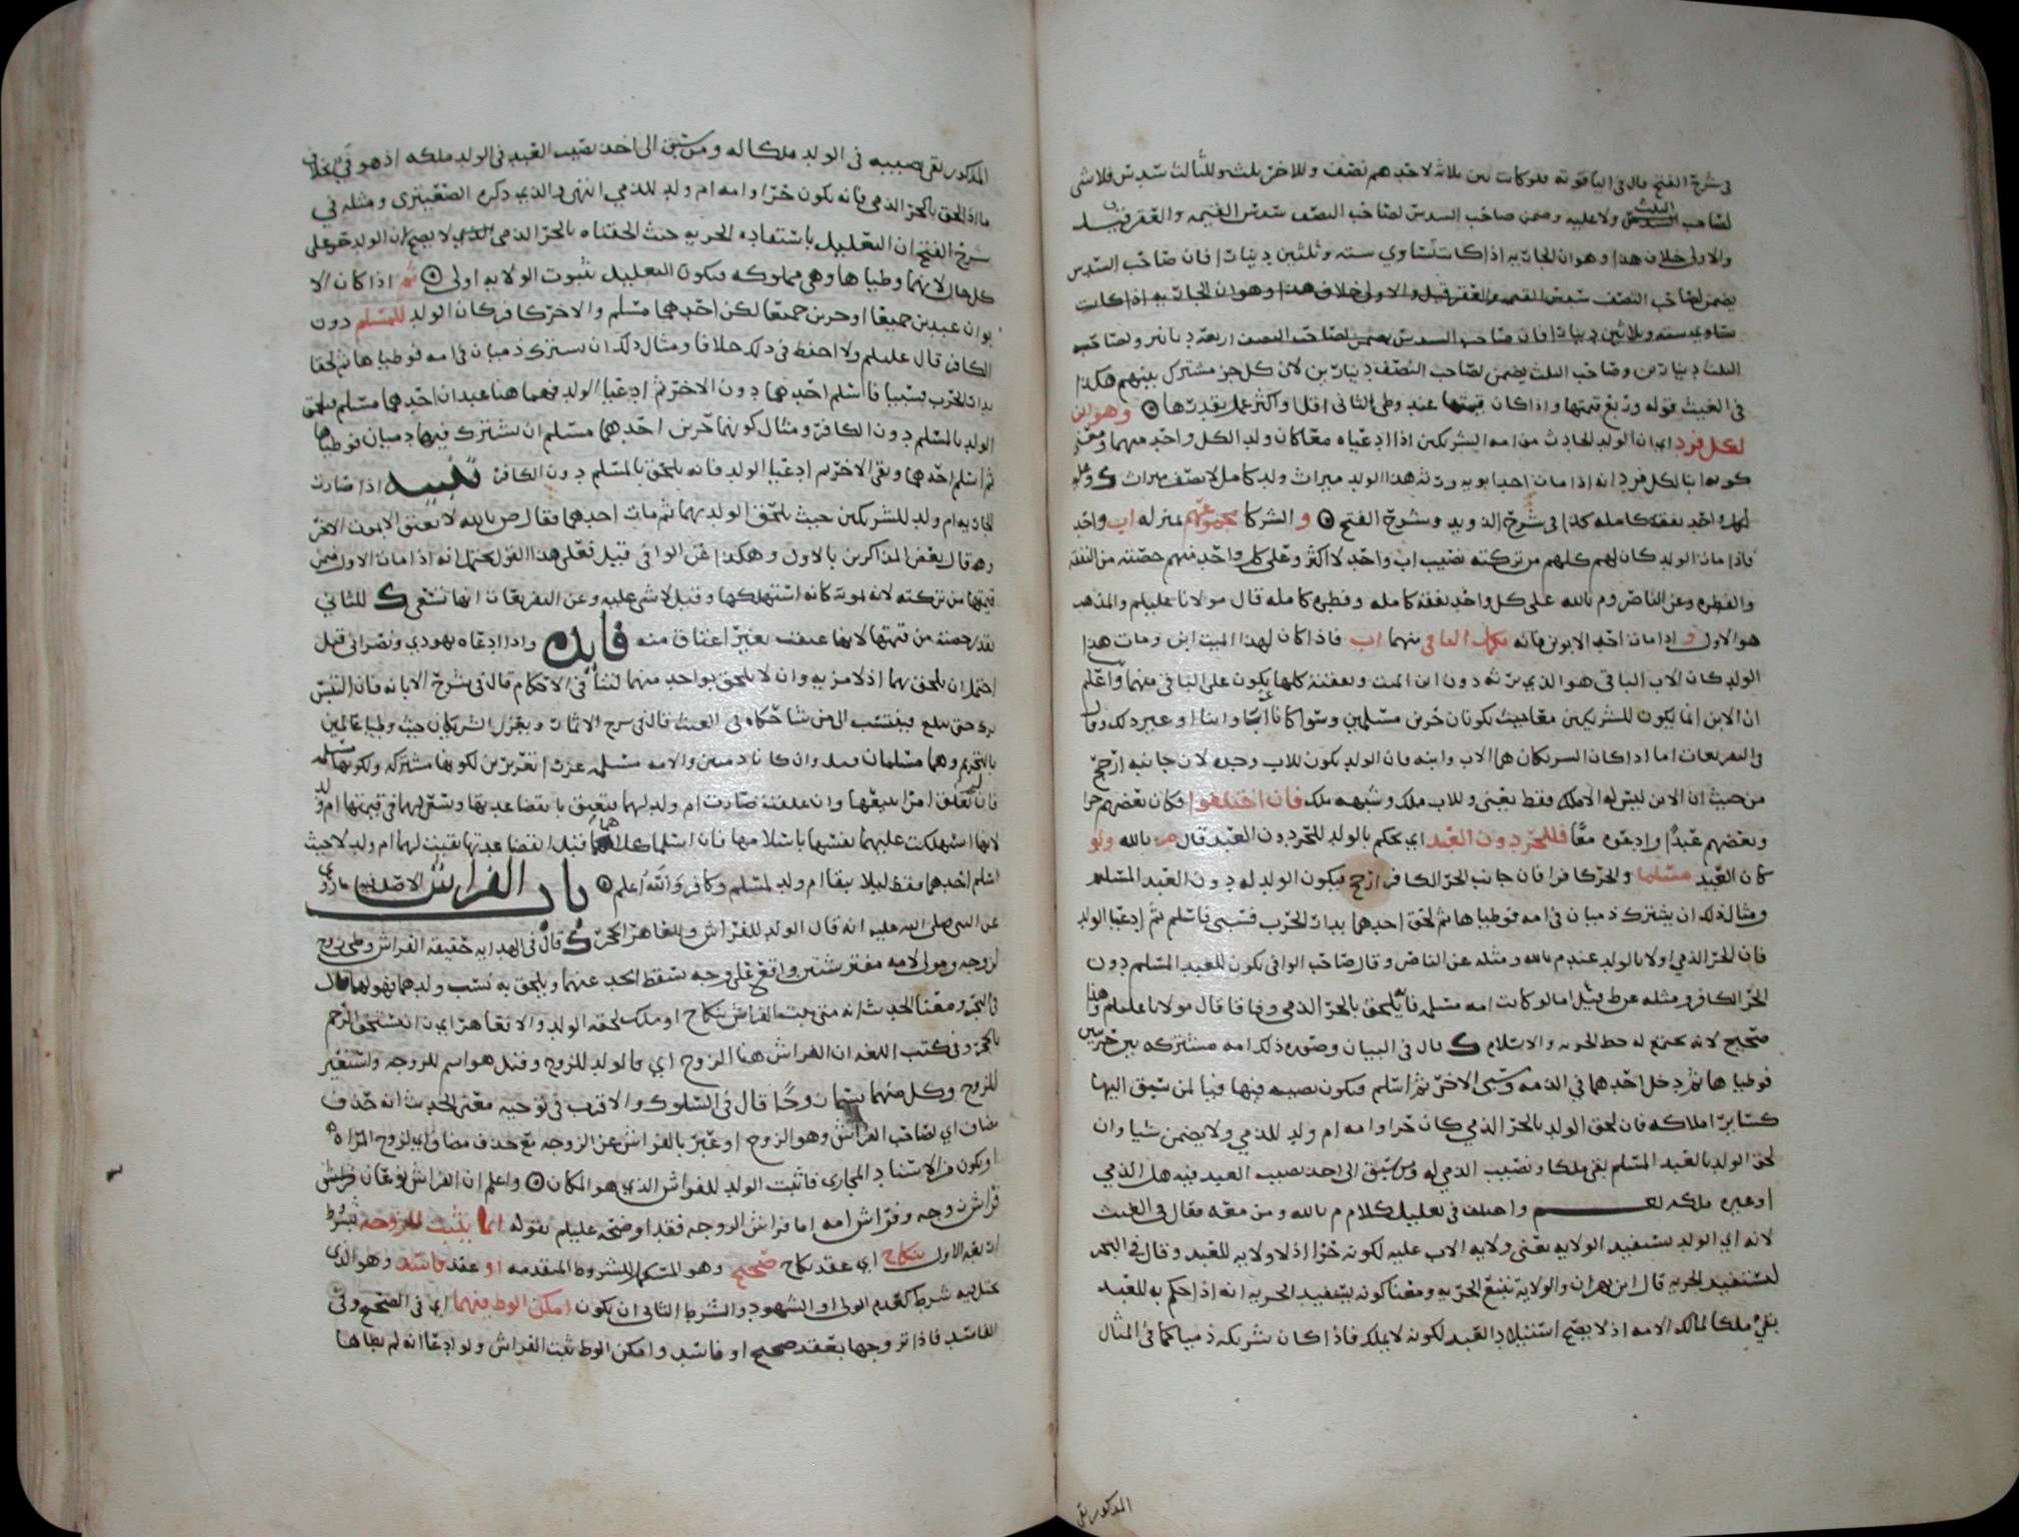 في شرح الفتح قال في الياقوته فلو كانت بين ثلاثه لاحدهم نصف وللاخر ثلث وللثالث سدس فلا شي
لصاحب الثلث ولا عليه وضمن صاحب السدس لصاحب النصف سدس القيمه والعقر قيل
والاولى خلاف هذا وهو ان الجاريه اذا كانت تساوي سته وثلثين دينارا فان صاحب السدس
يضمن لصاحب النصف سدس القيمه والعقر قيل والاولى خلاف هذا وهو ان الجاريه اذا كانت
تساوي سته وثلاثين دينارا فان صاحب السدس يضمن لصاحب النصف اربعة دنانير ولصاحب
الثلث دينارين وصاحب الثلث يضمن لصاحب النصف دينارين لان كل جزء مشترك بينهم هكذا
في الغيث قوله وربع قيمتها واذا كان قيمتها عند وطي الثاني اقل او اكثر عمل بقدرها وهو ابن
لكل فرد اي ان الولد الحادث من امه الشريكين اذا ادعياه معا كان ولد الكل واحد منهما ومعنى
كونه ابنا لكل فرد انه اذا مات احد ابويه ورثه هذا الولد ميراث ولد كامل لا نصف ميراث
لكل واحد نفقه كامله كذا في شرح الزويد وشرح الفتح والشركا مجموعهم بمنزله اب واحد
فاذا مات الولد كان لهم كلهم من تركته نصيب اب واحد لا اكثر وعلى كل واحد منهم حصته من النفقه
والفطره وعن الناصر و م بالله على كل واحد نفقه كامله وفطره كامله قال مولانا عليلم والمذهب
هو الاول و اذا مات احد الابوين فانه يكمل الباقي منهما اب فاذا كان لهذا الميت ابن ومات هذا
الولد كان الاب الباقي هو الذي يرثه دون ابن الميت ونفقته كلها يكون على الباقي منهما واعلم
ان الابن انما يكون للشريكين معا حيث يكونان حرين مسلمين وسوا كانا ابا وابنا او غير ذلك وقال
في التفريعات اما اذا كان الشريكان هما الاب وابنه فان الولد يكون للاب وحده لان جانبه ارجح
من حيث ان الابن ليس له الا ملك فقط يعني وللاب ملك وشبهه ملك فان اختلفوا فكان بعضهم حرا
وبعضهم عبدا وادعوه معا فللحر دون العبد اي يحكم بالولد للحر دون العبد قال م بالله ولو
كان العبد مسلما والحر كافرا فان جانب الحر الكافر ارجح فيكون الولد له دون العبد المسلم
ومثال ذلك ان يشترك ذميان في امه فوطياها ثم لحق احدهما بدار الحرب فسبي فاسلم ثم ادعيا الولد
فان الحر الذمي اولا بالولد عند م بالله ومثله عن الناصر وقال صاحب الوافي يكون للعبد المسلم دون
الحر الكافر ومثله عن ط قيل اما لو كانت امه مسلمه فانه يلحق بالحر الذمي وفاقا قال مولانا عليلم وهذا
صحيح لانه يجتمع له حظ الحريه والاسلام قال في البيان وصوره ذلك امه مشتركه بين حربيين
فوطياها ثم دخل احدهما في الذمه وسبي الاخر ثم اسلم فيكون نصيبه فيها فيا لمن سبق اليها
كساير املاكه فان لحق الولد بالحر الذمي كان حرا وامه ام ولد للذمي ولا يضمن شيا وان
لحق الولد بالعبد المسلم بقي ملكا ونصيب الذمي له ومن سبق الى اخذ نصيب العبد فيه هل الذمي
او غيره ملكه نعم واختلف في تعليل كلام م بالله ومن معه فقال في الغيث
لانه اي الولد يستفيد الولايه يعني ولايه الاب عليه لكونه حرا اذ لا ولايه للعبد وقال في البحر
ليستفيد الحريه قال ابن بهران والولاية تتبع الحريه ومعنا كونه يستفيد الحريه انه اذا حكم به للعبد
بقي ملكا لمالك الامه اذ لا يصح استيلاد العبد لكونه لا يملك فاذا كان شريكه ذميا كما في المثال
المذكور بقي
المذكور بقي نصيبه في الولد ملكا له ومن سبق الى اخذ نصيب العبد في الولد ملكه اذ هو في بخلاف
ما اذا لحق بالحر الذمي فانه يكون حرا وامه ام ولد للذمي انتهى والذي ذكره الصعيتري ومثله في
شرح الفتح ان التعليل باستفاده الحريه حيث الحقناه بالحر الذمي لا يصح لان الولد حر على
كل حال لانهما وطياها وهي مملوكه فيكون التعليل بثبوت الولايه اولى ثم اذا كان الا
بوان عبدين جميعا او حرين جميعا لكن احدهما مسلم والاخر كافر كان الولد للمسلم دون
الكافر قال عليلم ولا احفظ في ذلك خلافا ومثال ذلك ان يشترك ذميان في امه فوطياها ثم لحقا
بدار الحرب فسبيا فاسلم احدهما دون الاخر ثم ادعيا الولد فهما هنا عبدان احدهما مسلم فيلحق
الولد بالمسلم دون الكافر ومثال كونهما حرين احدهما مسلم ان يشترك فيها ذميان فوطياها
ثم اسلم احدهما وبقي الاخر ثم ادعيا الولد فانه يلحق بالمسلم دون الكافر تنبيه اذا صارت
الجاريه ام ولد للشريكين حيث يلحق الولد بهما ثم مات احدهما فقال ص بالله لا تعتق الا بموت الاخر
وقال بعض المذاكرين بالاول وهكذا عن الوافي قيل فعلى هذا القول يحتمل انه اذا مات الاول ضمن
قيمتها من تركته لانه بموته كانه استهلكها وقيل لا شي عليه وعن التفريعات انها تسعى للثاني
بقدر حصته من قيمتها لانها عتقت بغير اعتاق منه فايده واذا ادعاه يهودي ونصراني قيل
احتمل ان يلحق بهما اذ لا مزيه وان لا يلحق بواحد منهما لتنافي الاحكام قال في شرح الابانه فان التبس
ترك حتى يبلغ فينتسب الى من شا حكاه في الغيث قال في شرح الاثمار ويعزر الشريكان حيث وطيا عالمين
بالتحريم وهما مسلمان فيه وان كانا ذميين والامه مسلمه عزرا تعزيرين لكونها مشتركه ولكونها مسلمه
فان لم تعلق امرا ببيعها وان علقت صارت ام ولد لهما فتعتق بانقضا عدتها وتسعى لهما في قيمتها ام ولد
لانها استهلكت عليهما نفسها باسلامها فان اسلما كلاهما قبل انقضا عدتها بقيت لهما ام ولد لا حيث
اسلم احدهما فقط ليلا يبقا ام ولد لمسلم وكافر والله اعلم باب الفراش الاصل فيه ما روي
عن النبي صلى الله عليه انه قال الولد للفراش وللعاهر الحجر قال في الهدايه حقيقه الفراش وطي زوج
لزوجه ومولى لامه مفترشتين واقع على وجه يسقط الحد عنهما ويلحق به نسب ولدهما فهو لهما قال
في البحر ومعنا الحديث انه متى ثبت الفراش بنكاح او ملك لحقه الولد والا فعاهر اي زان يستحق الرجم
بالحجر وفي كتب اللغه ان الفراش هنا الزوج اي فالولد للزوج وقيل هو اسم للزوجه واستعير
للزوج وكل منهما يسما زوجا قال في السلوك والاقرب في توجيه معنى الحديث انه حذف
مضاف اي لصاحب الفراش وهو الزوج او عبر بالفراش عن الزوجه مع حذف مضاف اي لزوج المراه
او يكون من الاسناد المجازي فاثبت الولد للفراش الذي هو المكان واعلم ان الفراش نوعان فراش
فراش زوجه وفراش امه اما فراش الزوجه فقد اوضحه عليلم بقوله انما يثبت للزوجه بشروط
اربعه الاول بنكاح اي عقد نكاح صحيح وهو المستكمل للشروط المتقدمه او عقد فاسد وهو الذي
يختل فيه شرط كعدم الولي او الشهود والشرط الثاني ان يكون امكن الوطي فيهما اي في الصحيح وفي
الفاسد فاذا تزوجها بعقد صحيح او فاسد وامكن الوطي ثبت الفراش ولو ادعا انه لم يطاها